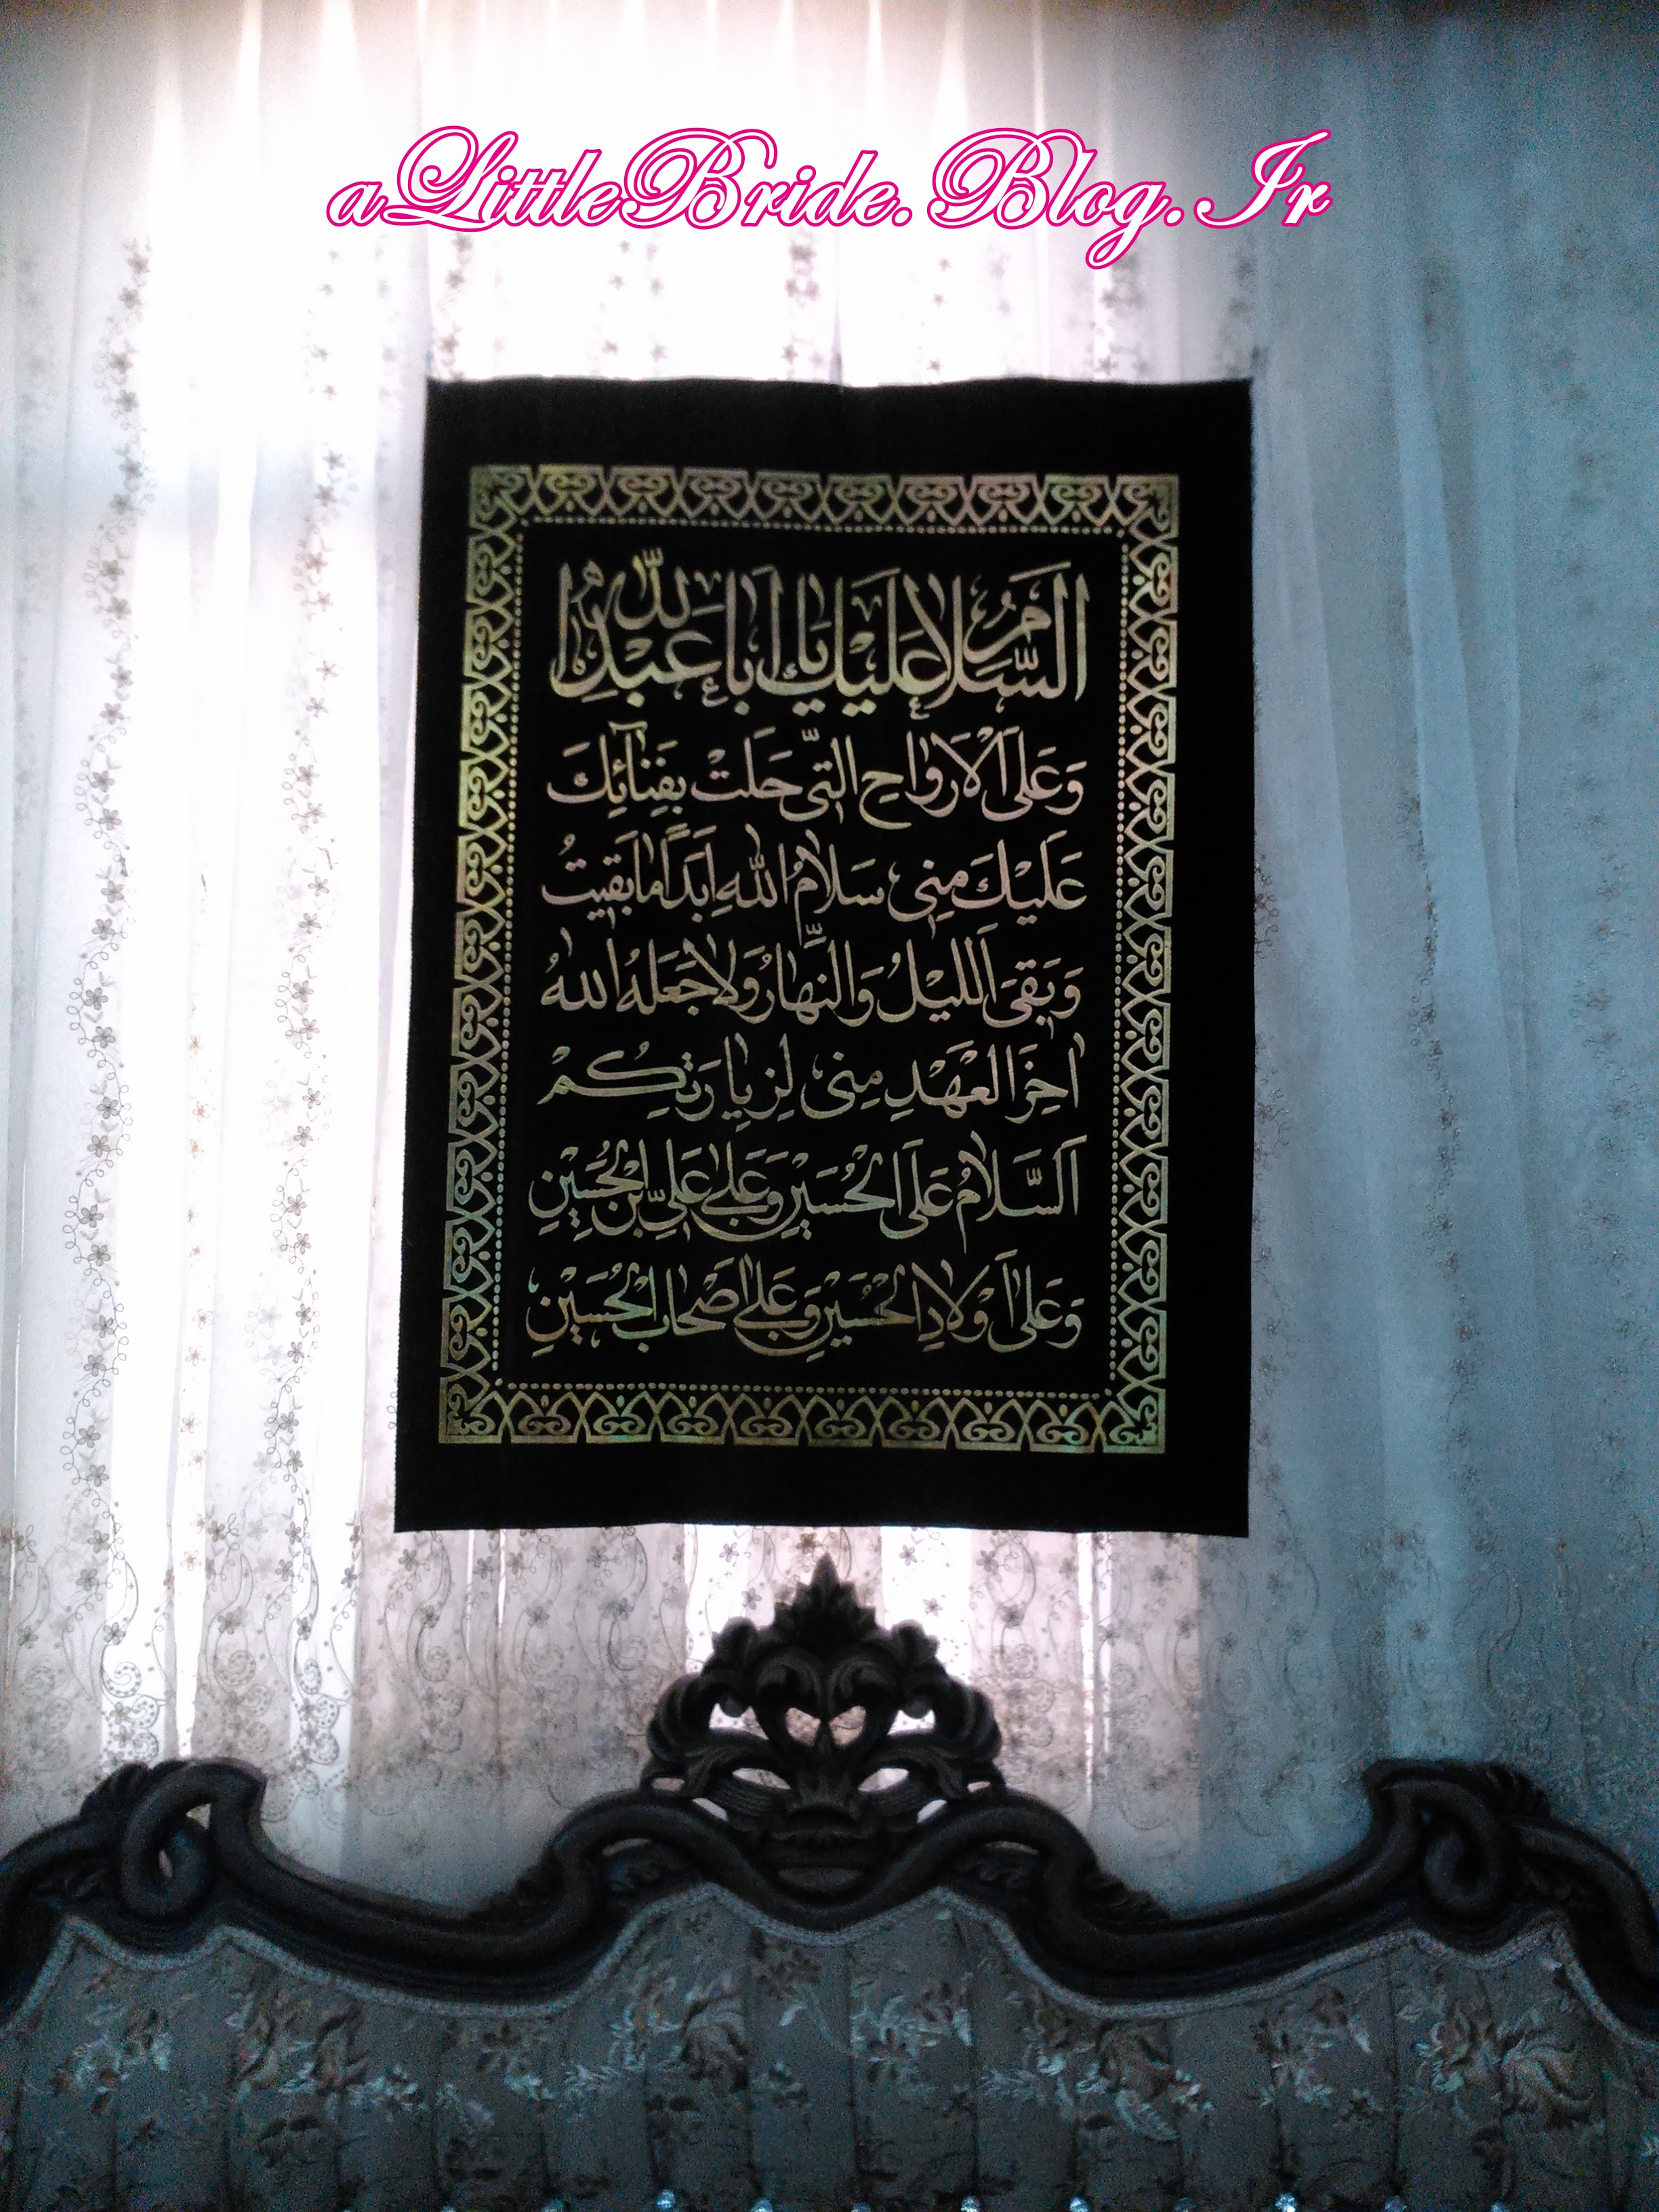 aLittleBride.Blog.Ir
اَلسَّلامُ عَلَيْكَ يا اَبا عَبْدِاللهِ
وَعَلَى الْاَرْواحِ الَّتى حَلَتْ بِفِنآئِكَ
عَلَيْكَ مِنى سَلامُ اللهِ اَبَدًا ما بَقيتُ
وَبَقِىَ اللَيْلُ وَالنَّهارُ وَلا جَعَلَهُ اللهُ
اخِرَ العَهْدِ مِنى لِزِيارَتِكُمْ
اَلسَّلامُ عَلَى الْحُسَيْنِ وَعَلى عَلِىِّ بْنِ الْحُسَيْنِ
وَعَلى اَوْلادِ الْحُسَيْنِ وَعَلى اَصْحابِ الْحُسَيْنِ